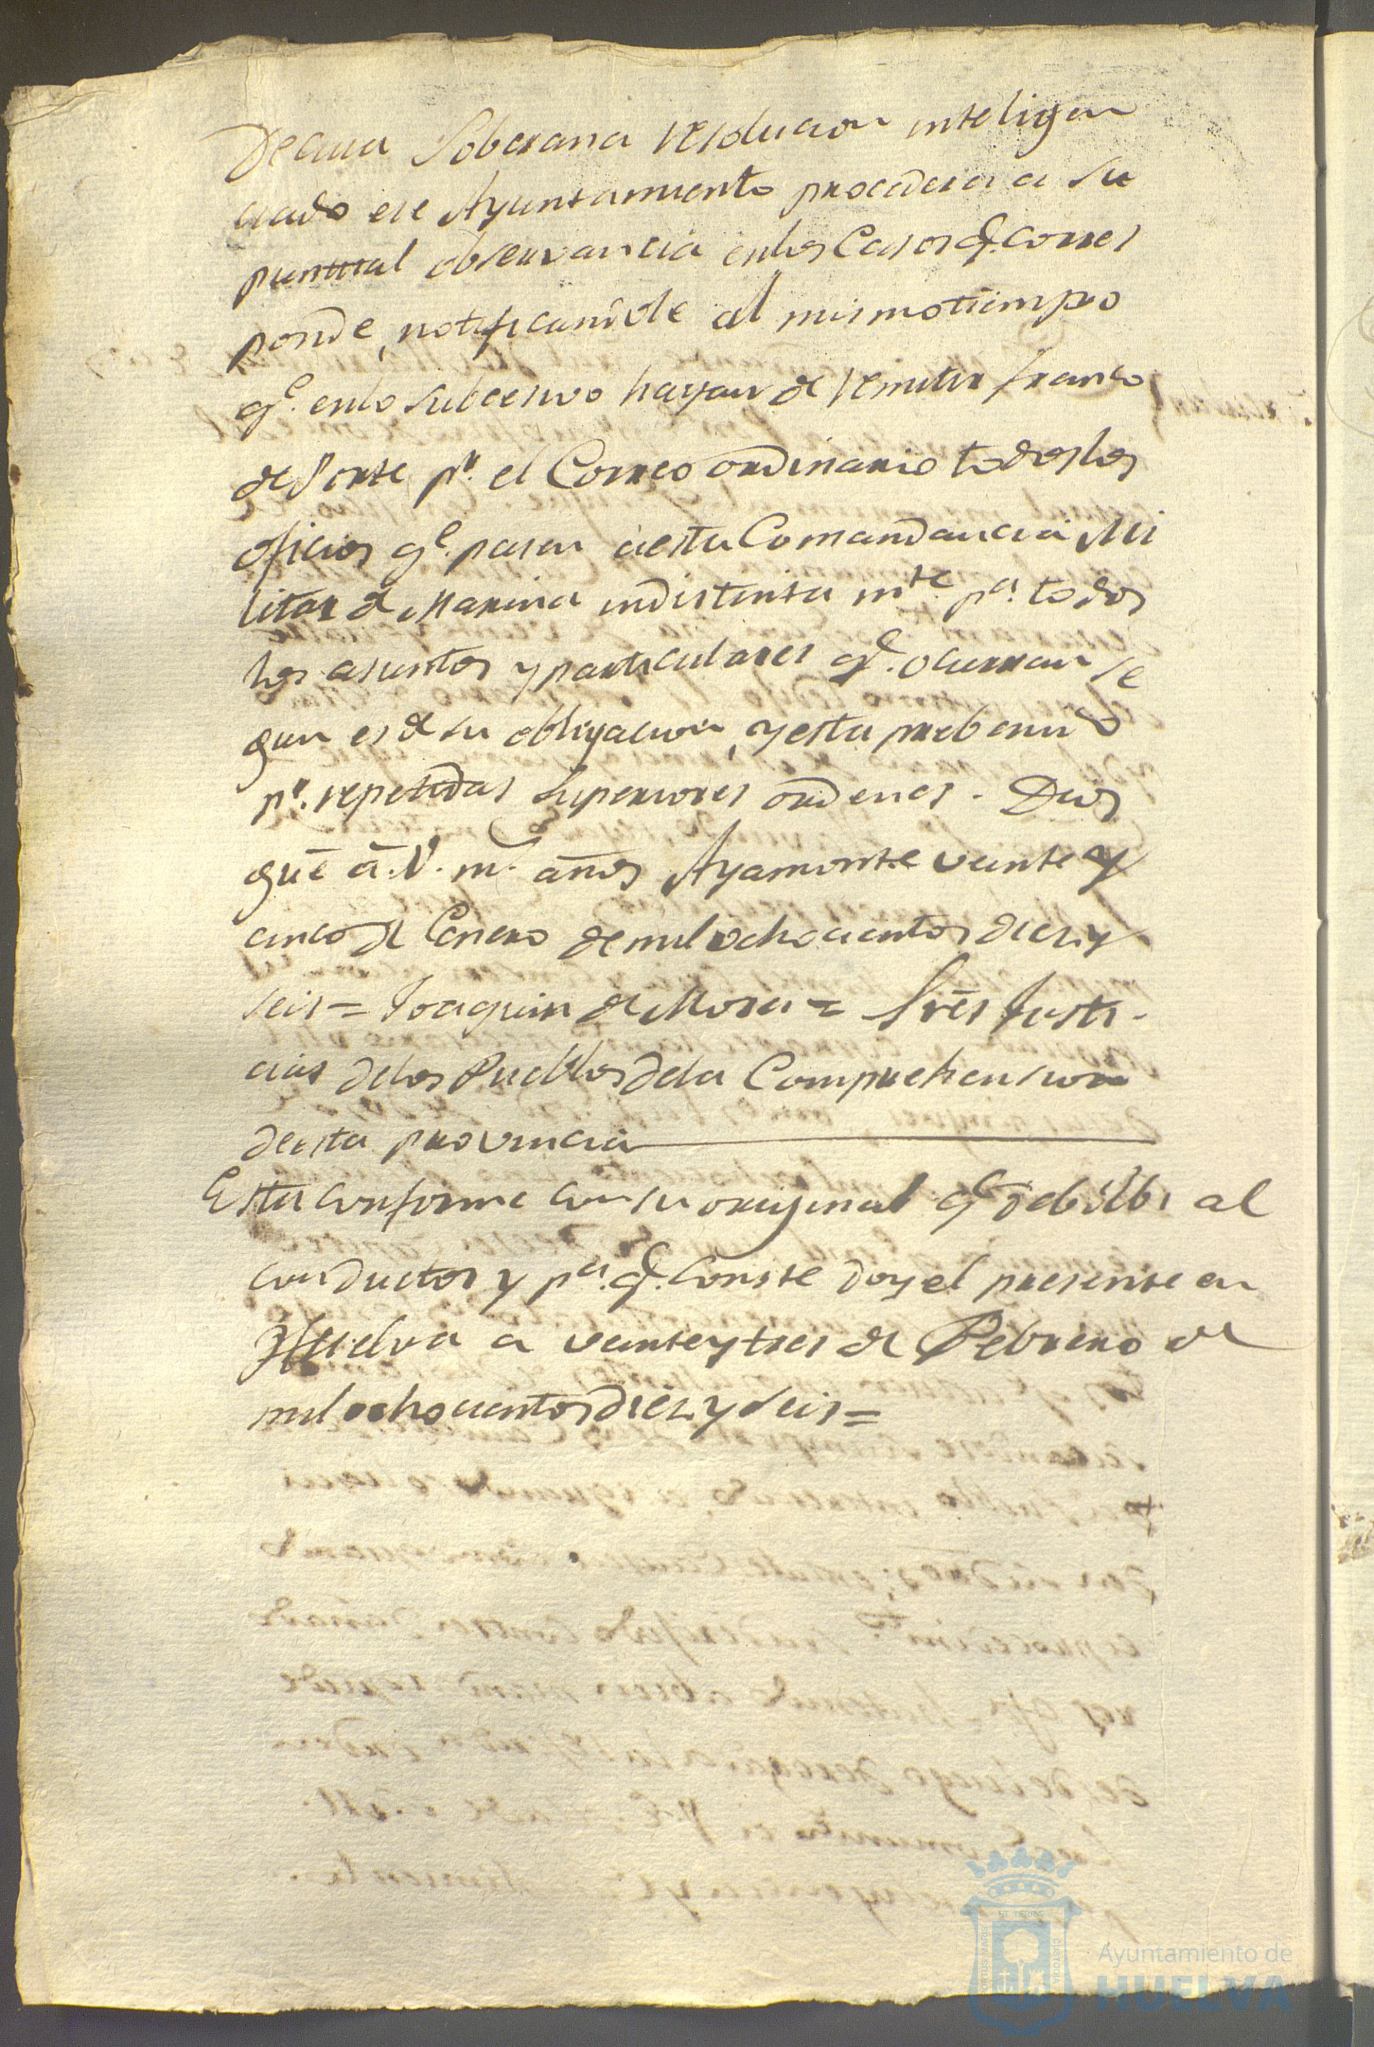 De cuia Soberana resolucion inteligen
ciado ese Ayuntamiento procedera a su
puntual observancia en los Casos q.e corres
ponde, notificandole al mismo tiempo
q.e en lo subcesivo hayan de remitir franco
de Porte p.r el Correo ordinario todos los
oficios q.e pasen a esta Comandancia Mi
litar de Marina indistinta m.te p.a todos
los asuntos y particulares q.e ocurran se
gun es de su obligacion, y esta prebenido
p.r repetidas Superiores ordenes. Dios
gūe ā. V. m.s años Ayamonte veinte y
cinco de Enero de mil ochocientos diez y
seis = Joaquin de Mora = Srēs Justi-
cias de los Pueblos de la Comprehension
de esta provincia
Esta conforme con su original q.e debolbi al
conductor y p.a q.e conste doy el presente en
Huelva a veinte y tres de Febrero de
mil ochocientos diez y seis =
Ayuntamiento de
HUELVA